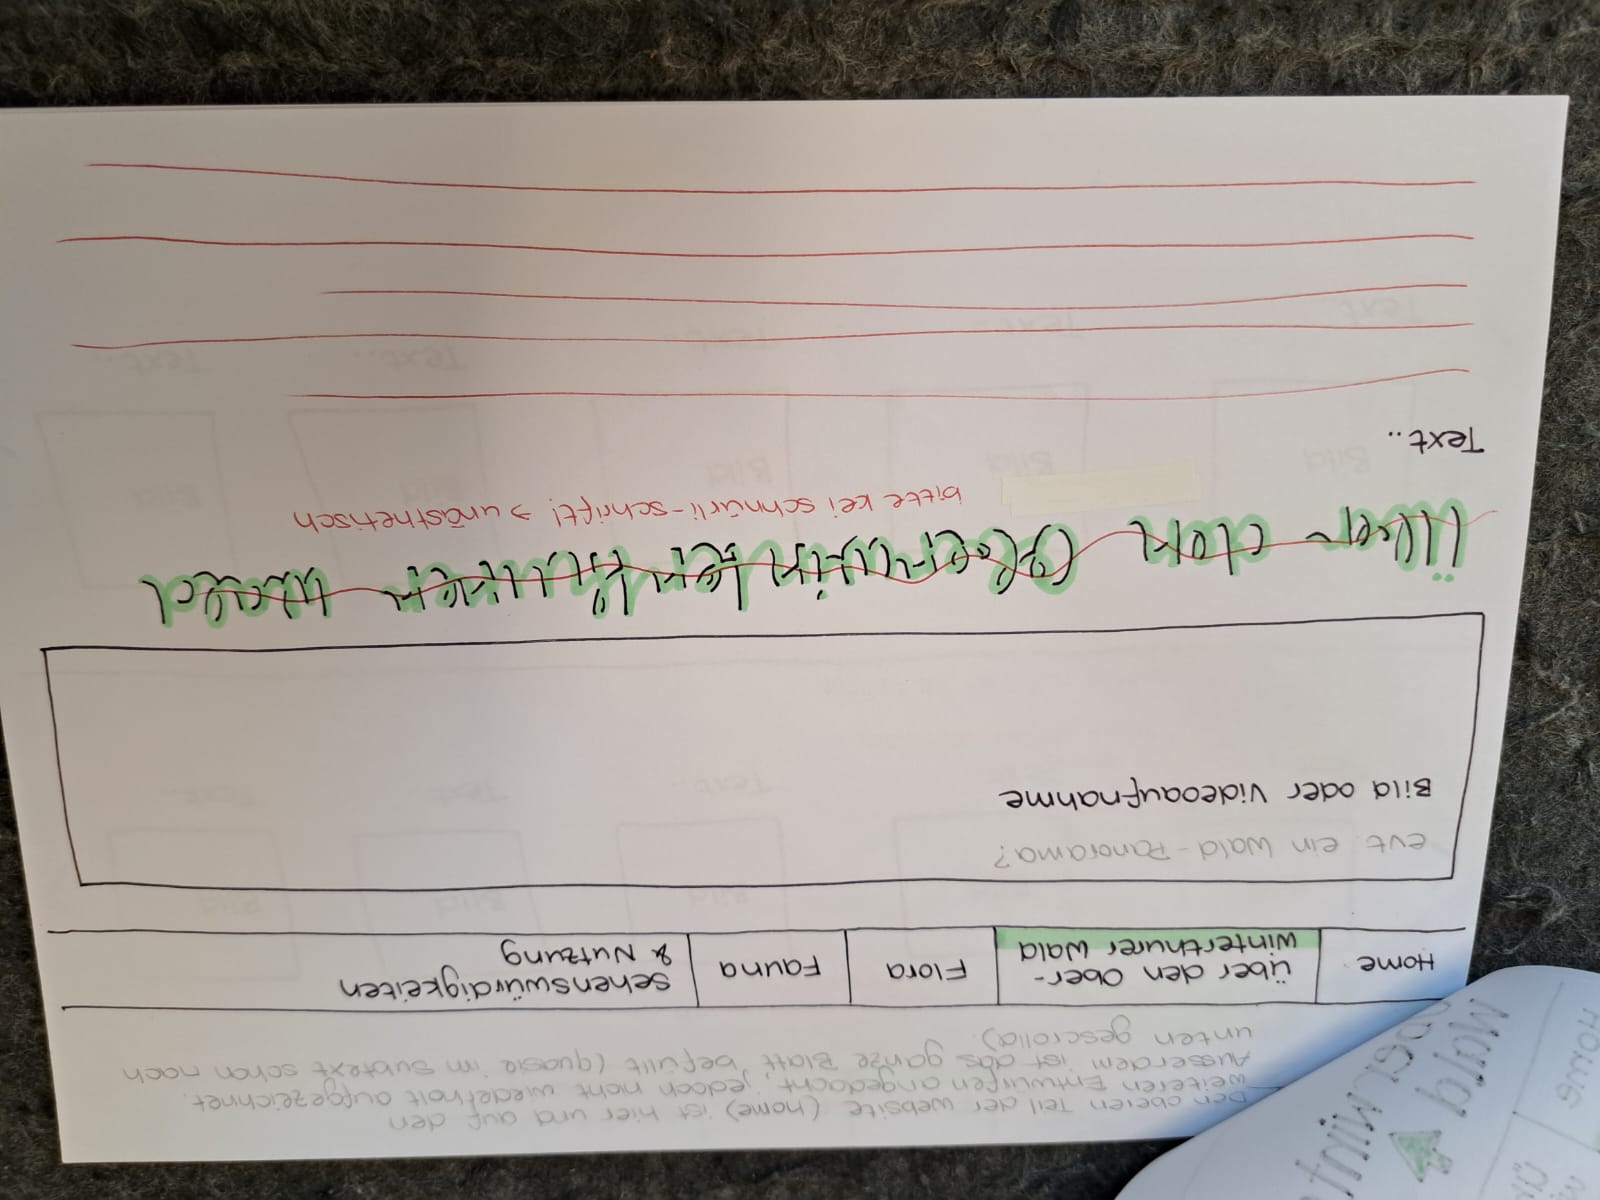 Home
Den oberen Teil der Website (home) ist hier und auf den
weiteren Entwürfen angedacht, jedoch nicht wiederholt aufgezeichnet.
Ausserdem ist das ganze Blatt befüllt (quasie im subtext schon nach
unten gescrolld).
Home
über den Ober-
winterthurer Wald
Flora
Fauna
Sehenswürdigkeiten
& Nutzung
evt. ein Wald-Panorama?
Bild oder Videoaufnahme
Über den Oberwinterthurer Wald
bitte kei schnürli-schrift! → unästhetisch
Text..
Bild
Bild
Bild
Text..
Text..
Text..
Bild
Bild
Bild
Bild
Bild
Text..
Text..
Text..
Text..
Text..